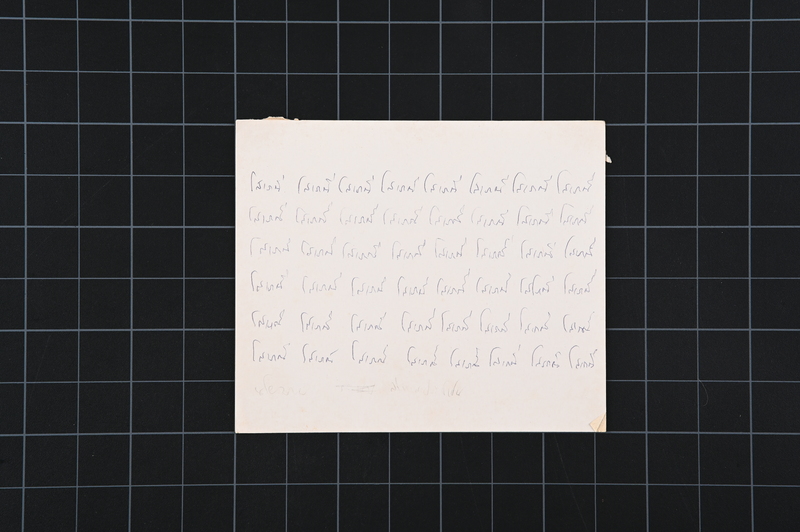 โสเภณี โสเภณี โสเภณี โสเภณี โสเภณี โสเภณี โสเภณี โสเภณี
โสเภณี โสเภณี โสเภณี โสเภณี โสเภณี โสเภณี โสเภณี โสเภณี
โสเภณี โสเภณี โสเภณี โสเภณี โสเภณี โสเภณี โสเภณี โสเภณี
โสเภณี โสเภณี โสเภณี โสเภณี โสเภณี โสเภณี โสเภณี โสเภณี
โสเภณี โสเภณี โสเภณี โสเภณี โสเภณี โสเภณี โสเภณี โสเภณี
โสเภณี โสเภณี โสเภณี โสเภณี โสเภณี โสเภณี โสเภณี โสเภณี